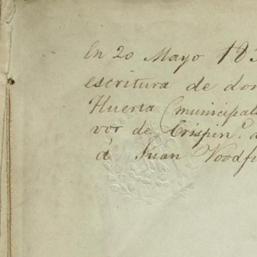 En 20 Mayo 183
escritura de don
Huerta (municipal
vor de Crispin. a
á Juan Woodfi